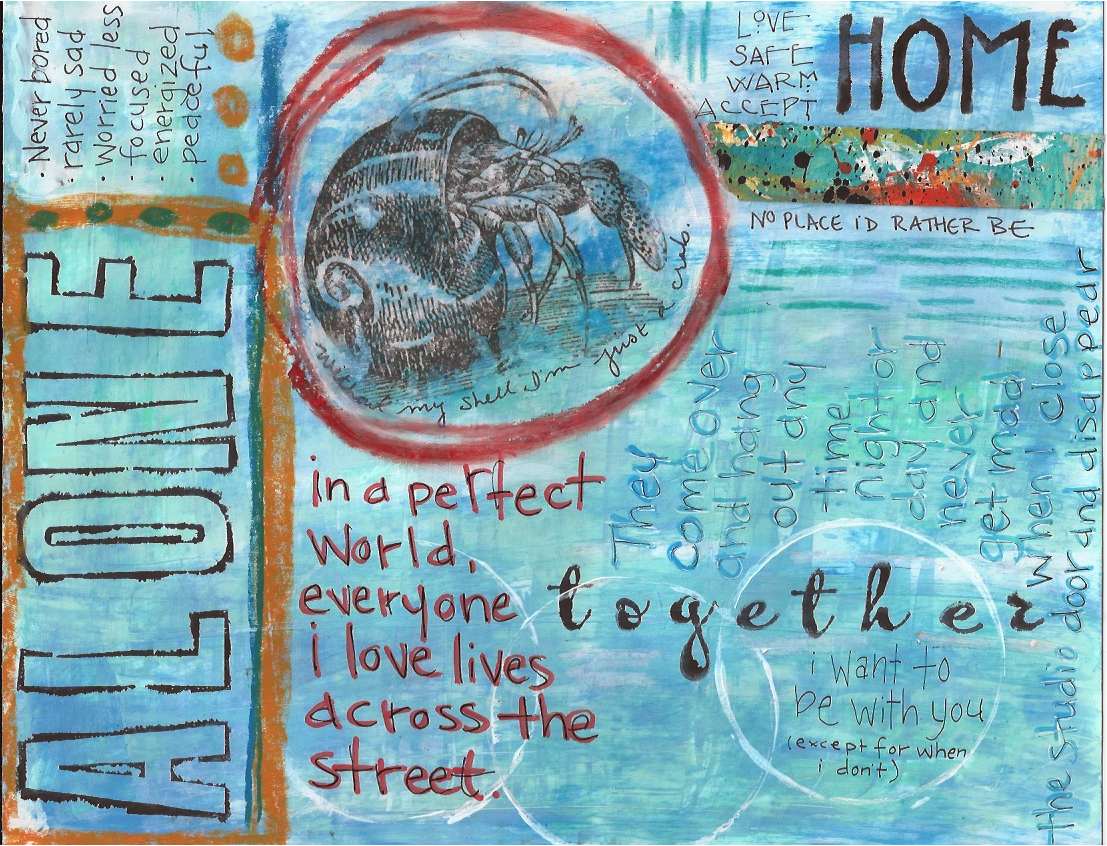 · Never bored
· rarely sad
· Worried less
· focused
· energized
· peaceful
ALONE
LOVE
SAFE
WARM
ACCEPT
HOME
NO PLACE I'D RATHER BE
my shell I'm just a crab.
in a perfect
world,
everyone
i love lives
across the
street.
They
come over
and hang
out any
time
night or
day and
never
get mad
when I close
the studio door and disappear
together
i want to
be with you
(except for when
i don't)